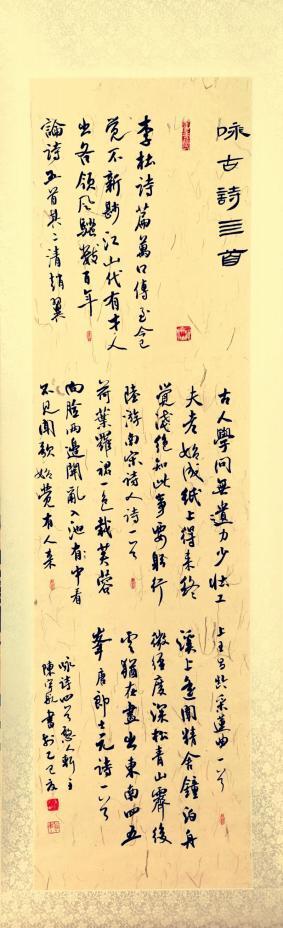 咏古詩三首
李杜詩篇萬口傳至今已
覺不新鮮江山代有才人
出各領風騷數百年
論詩五首其二清趙翼
古人學問無遺力少壯工
夫老始成紙上得來終
覺淺絕知此事要躬行
陸游南宋詩人詩一首
荷葉羅裙一色裁芙蓉
向臉兩邊開亂入池中看
不見聞歌始覺有人來
上王昌齡采蓮曲一首
溪上遙聞精舍鐘泊舟
微徑度深松青山霽後
雲猶在畫出東南四五
峯唐郎士元詩一首
咏詩四首
書於乙巳